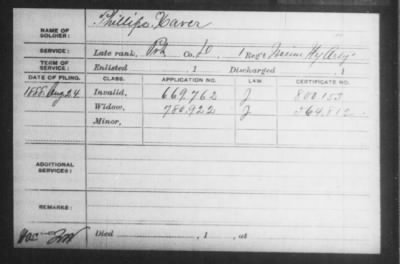 NAME OF SOLDIER: Phillips, Xaver
SERVICE: Late rank, Pvt Co. D, 1 Reg't Maine Hy Art'y
TERM OF SERVICE: Enlisted , 1 Discharged , 1
DATE OF FILING. CLASS. APPLICATION NO. LAW CERTIFICATE NO.
1888 Aug 24 Invalid, 669.762 J 800.153
Widow, 780.922 J 564.812
Minor,
ADDITIONAL SERVICES:
REMARKS:
Died , 1 , at